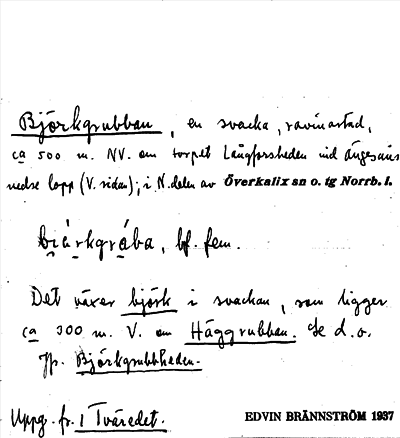 Björkgrubban, en svacka, ravinartad,
ca 500 m. NV. om torpet Långforsheden vid Ängesåns
nedre lopp (V. sidan); i N. delen av Överkalix sn o. tg Norrb. l.
bi̯árkgrába, bf. fem.
Det växer björk i svackan, som ligger
ca 300 m. V. om Häggrubban. Se d. o.
Jfr. Björkgrubbheden.
Uppg. fr. 1 Tväredet. EDVIN BRÄNNSTRÖM 1937